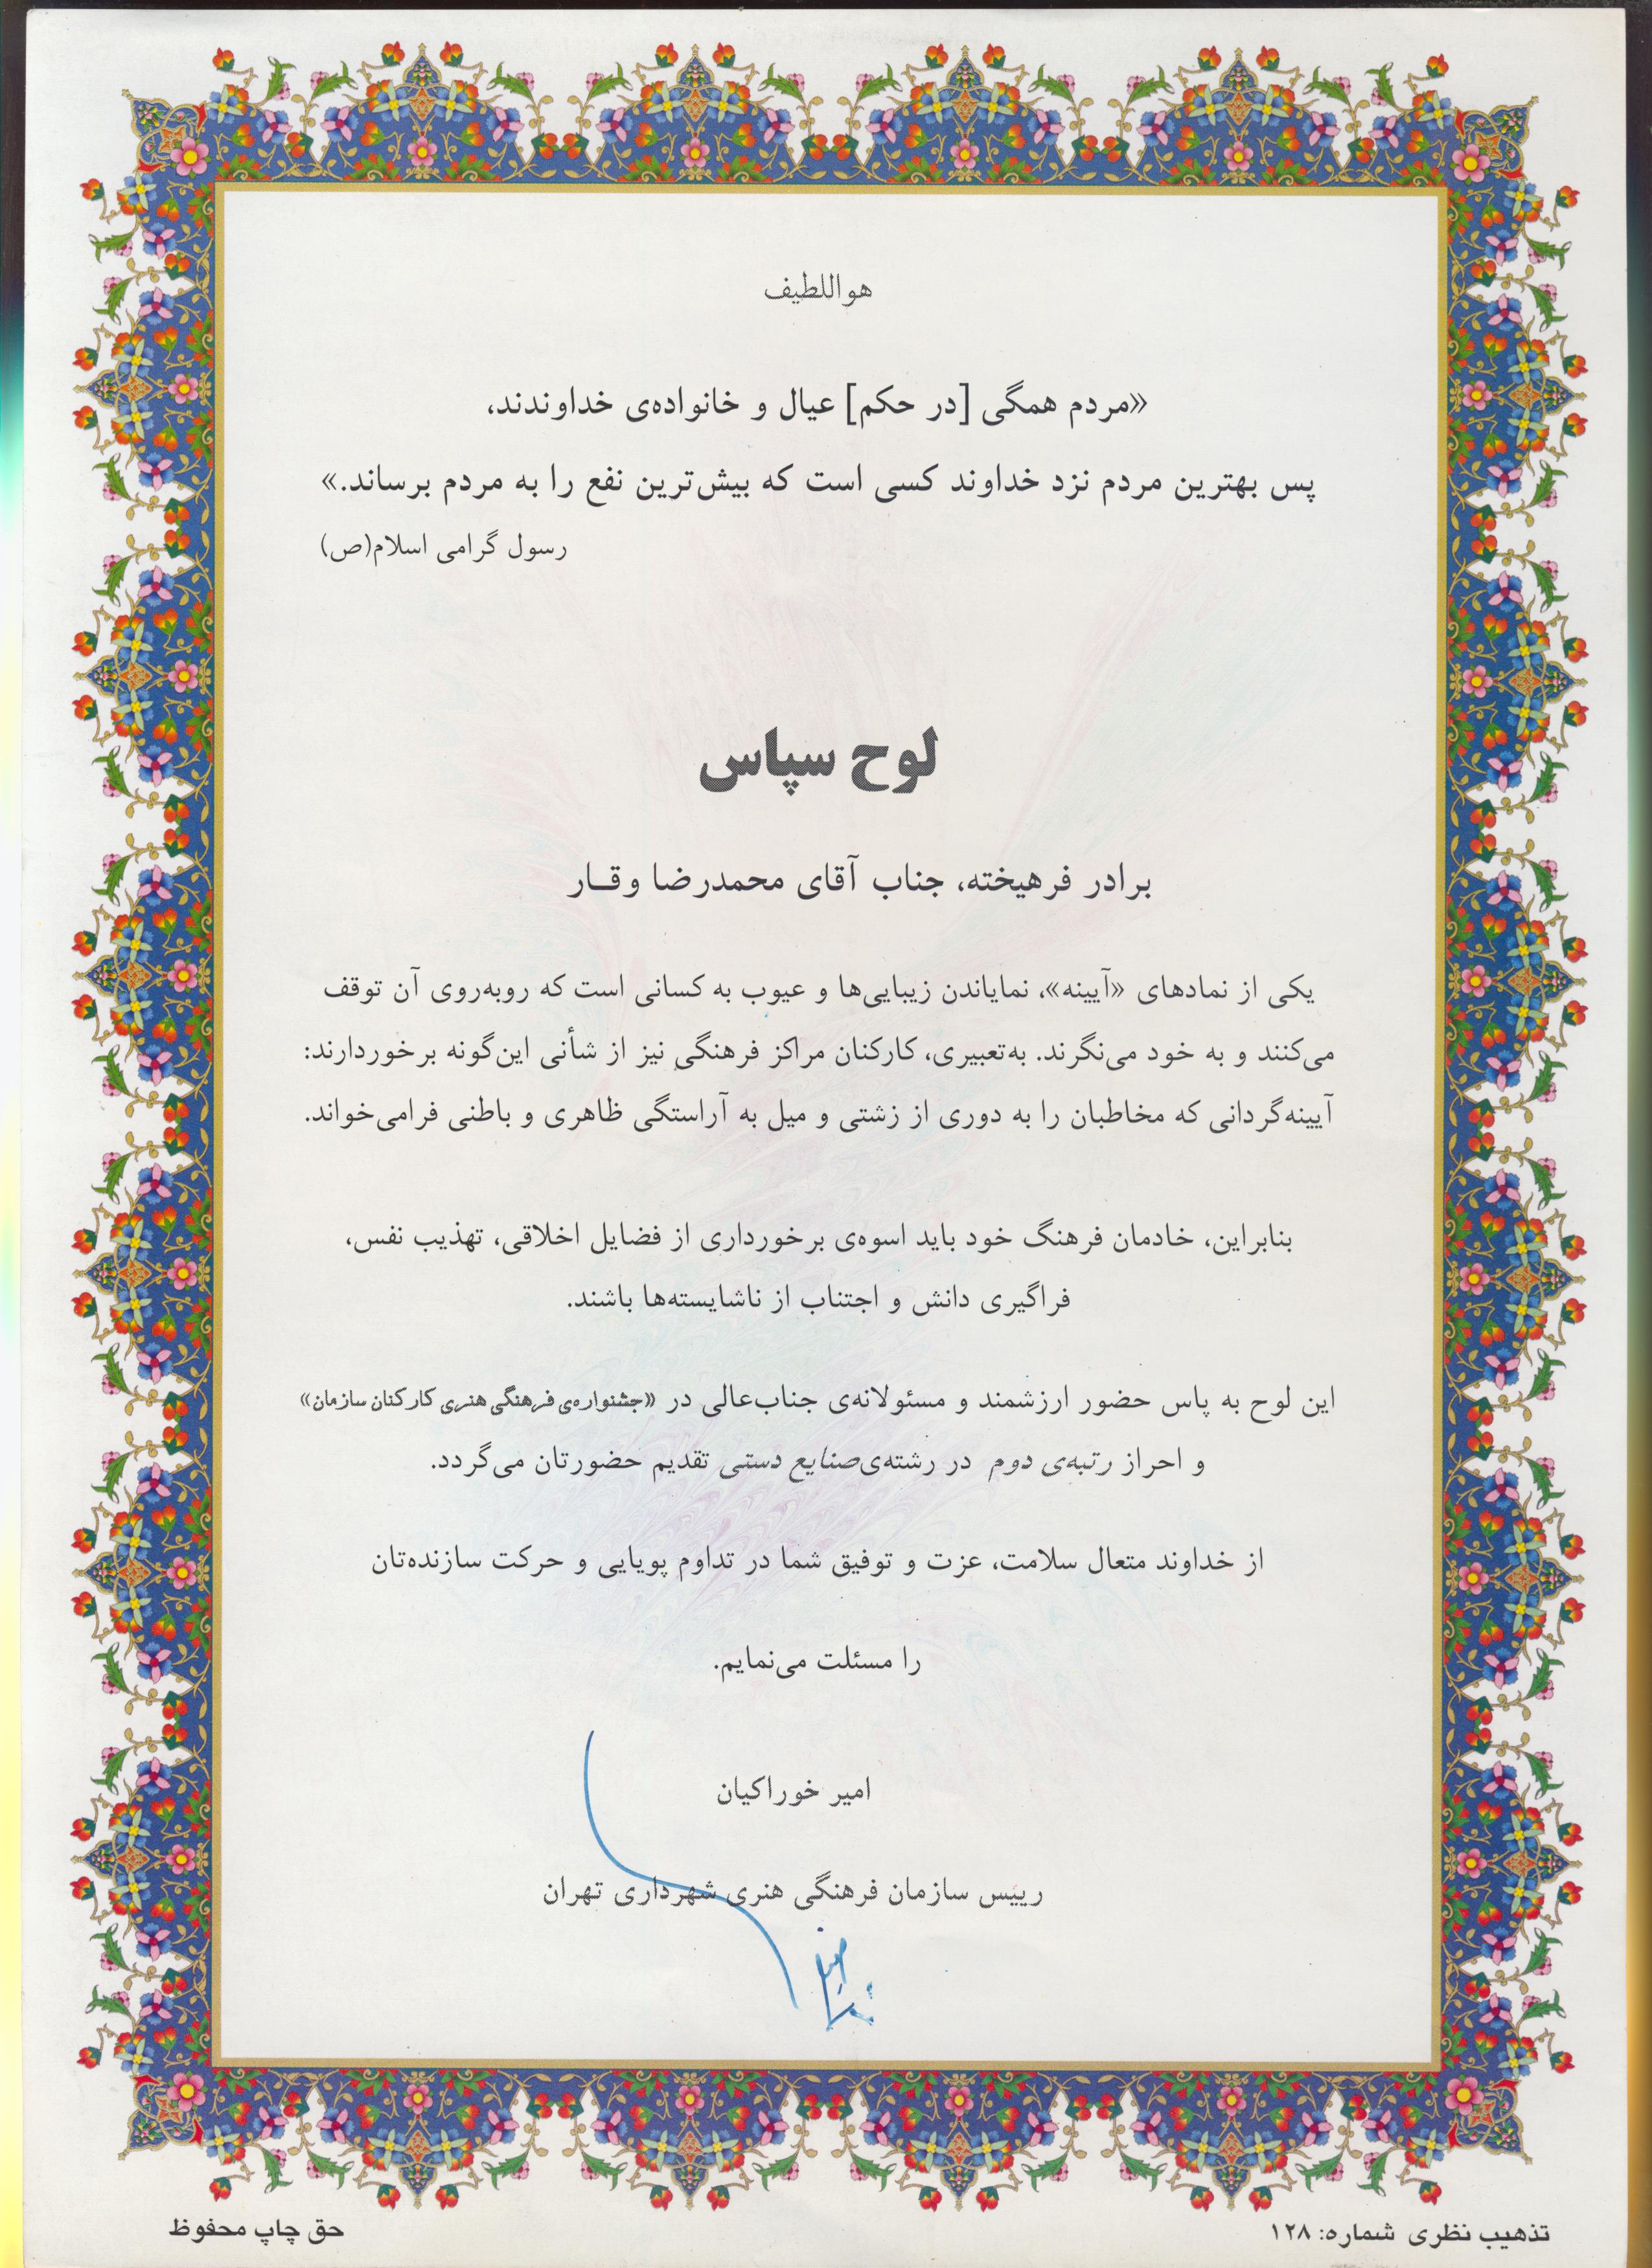 هواللطیف
«مردم همگی [در حکم] عیال و خانواده‌ی خداوندند،
پس بهترین مردم نزد خداوند کسی است که بیش‌ترین نفع را به مردم برساند.»
رسول گرامی اسلام(ص)
لوح سپاس
برادر فرهیخته، جناب آقای محمدرضا وقـار
یکی از نمادهای «آیینه»، نمایاندن زیبایی‌ها و عیوب به کسانی است که روبه‌روی آن توقف
می‌کنند و به خود می‌نگرند. به‌تعبیری، کارکنان مراکز فرهنگی نیز از شأنی این‌گونه برخوردارند:
آیینه‌گردانی که مخاطبان را به دوری از زشتی و میل به آراستگی ظاهری و باطنی فرامی‌خواند.
بنابراین، خادمان فرهنگ خود باید اسوه‌ی برخورداری از فضایل اخلاقی، تهذیب نفس،
فراگیری دانش و اجتناب از ناشایسته‌ها باشند.
این لوح به پاس حضور ارزشمند و مسئولانه‌ی جناب‌عالی در «جشنواره‌ی فرهنگی هنری کارکنان سازمان»
و احراز رتبه‌ی دوم در رشته‌ی صنایع دستی تقدیم حضورتان می‌گردد.
از خداوند متعال سلامت، عزت و توفیق شما در تداوم پویایی و حرکت سازنده‌تان
را مسئلت می‌نمایم.
امیر خوراکیان
رییس سازمان فرهنگی هنری شهرداری تهران
تذهیب نظری شماره: ۱۲۸
حق چاپ محفوظ